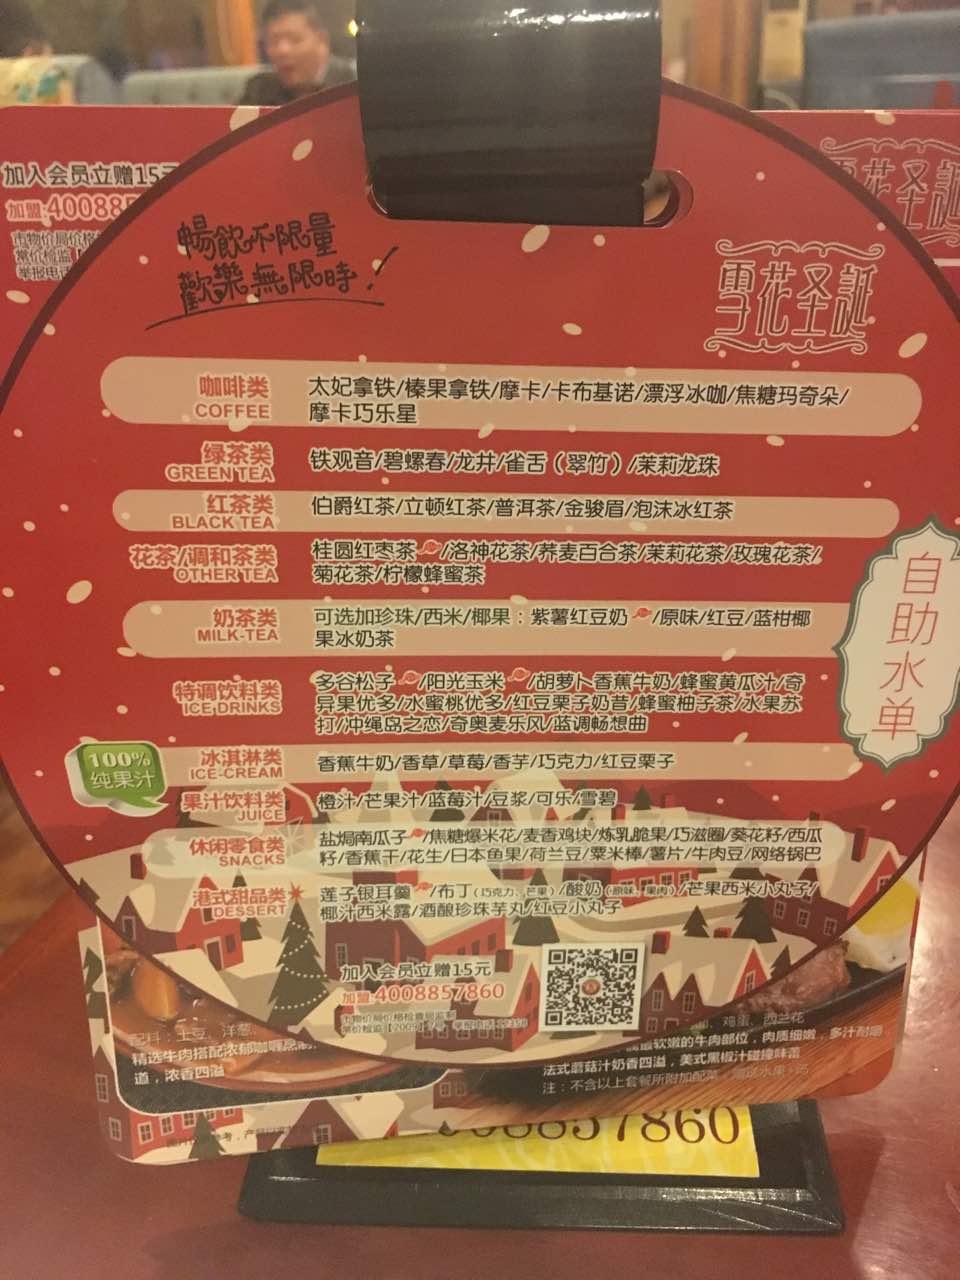 加入会员立赠15元
加盟:400885
畅飲不限量
歡樂無限時！
雪花圣誕
咖啡类
COFFEE
太妃拿铁/榛果拿铁/摩卡/卡布基诺/漂浮冰咖/焦糖玛奇朵/
摩卡巧乐星
绿茶类
GREEN TEA
铁观音/碧螺春/龙井/雀舌（翠竹）/茉莉龙珠
红茶类
BLACK TEA
伯爵红茶/立顿红茶/普洱茶/金骏眉/泡沫冰红茶
花茶/调和茶类
OTHER TEA
桂圆红枣茶/洛神花茶/荞麦百合茶/茉莉花茶/玫瑰花茶/
菊花茶/柠檬蜂蜜茶
奶茶类
MILK-TEA
可选加珍珠/西米/椰果：紫薯红豆奶/原味/红豆/蓝柑椰
果冰奶茶
特调饮料类
ICE DRINKS
多谷松子/阳光玉米/胡萝卜香蕉牛奶/蜂蜜黄瓜汁/奇
异果优多/水蜜桃优多/红豆栗子奶昔/蜂蜜柚子茶/水果苏
打/冲绳岛之恋/奇奥麦乐风/蓝调畅想曲
冰淇淋类
ICE-CREAM
香蕉牛奶/香草/草莓/香芋/巧克力/红豆栗子
100%
纯果汁
果汁饮料类
JUICE
橙汁/芒果汁/蓝莓汁/豆浆/可乐/雪碧
休闲零食类
SNACKS
盐焗南瓜子/焦糖爆米花/麦香鸡块/炼乳脆果/巧滋圈/葵花籽/西瓜
籽/香蕉干/花生/日本鱼果/荷兰豆/粟米棒/薯片/牛肉豆/网络锅巴
港式甜品类
DESSERT
莲子银耳羹/布丁(巧克力、芒果)/酸奶(原味、果肉)/芒果西米小丸子/
椰汁西米露/酒酿珍珠芋丸/红豆小丸子
自助水单
加入会员立赠15元
加盟:4008857860
市物价局价格检查局监制
配料：土豆、洋葱
精选牛肉搭配浓郁咖喱
道，浓香四溢
鸡蛋、西兰花
最软嫩的牛肉部位，肉质细嫩，多汁耐嚼
法式蘑菇汁奶香四溢，美式黑椒汁碰撞味蕾
注：不含以上套餐所附加配菜
08857860